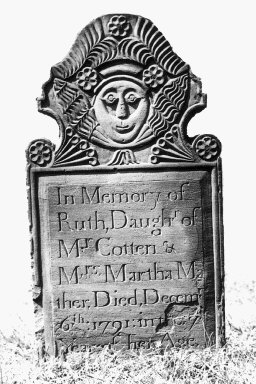 In Memory of
Ruth, Daughr of
Mr Cotten &
Mrs Martha Ma
ther, Died, Decem
6th 1791: in
Year of her Age.